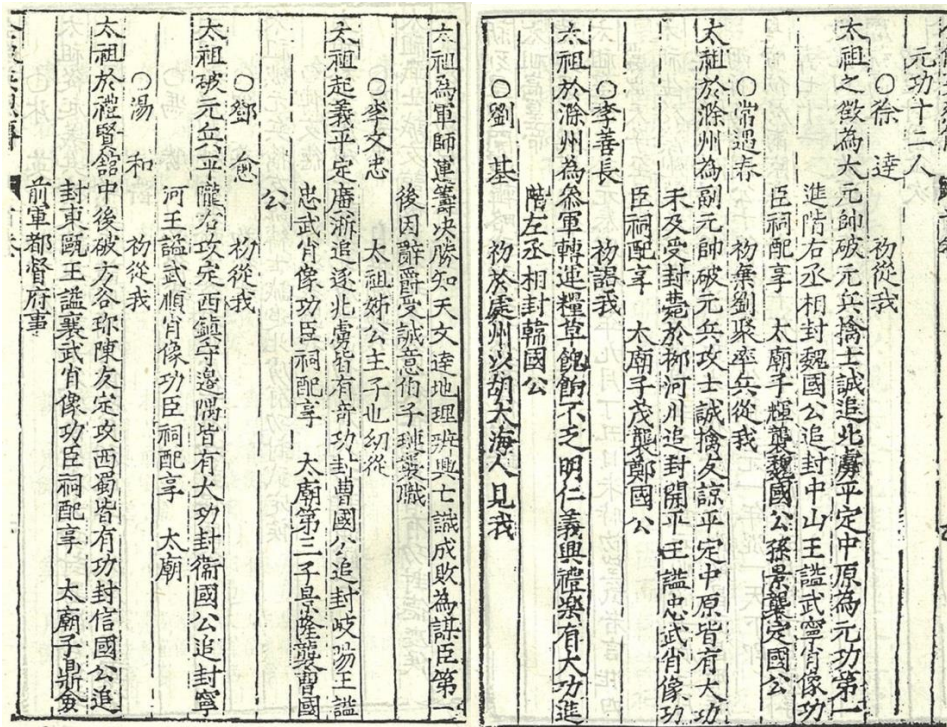 元功十二人
○徐 達 初從我
太祖之徵為大元帥破元兵擒士誠追北虜平定中原為元功第一
進階右丞相封魏國公追封中山王謚武寧肖像功
臣祠配享 太廟子輝襲魏國公孫景襲定國公
○常遇春 初棄劉聚率兵從我
太祖於滁州為副元帥破元兵攻士誠擒友諒平定中原皆有大功
未及受封薨於柳河川追封開平王謚忠武肖像功
臣祠配享 太廟子茂襲鄭國公
○李善長 初謁我
太祖於滁州為叅軍轉運糧草餽餉不乏明仁義興禮樂有大功進
階左丞相封韓國公
○劉 基 初於處州以胡大海人見我
太祖為軍師運籌决勝知天文逹地理辨興亡識成敗為謀臣第一
後因辭爵受誠意伯子璉襲職
○李文忠 太祖姊公主子也幼從
太祖起義平定廣浙追逐北虜皆有竒功封曹國公追封岐陽王謚
忠武肖像功臣祠配享 太廟第三子景隆襲曹國
公
○鄧 愈 初從我
太祖破元兵平隴右攻定西鎮守邊隅皆有大功封衛國公追封寧
河王謚武順肖像功臣祠配享 太廟
○湯 和 初從我
太祖於禮賢舘中後破方谷珎陳友定攻西蜀皆有功封信國公追
封東甌王謚襄武肖像功臣祠配享 太廟子鼎僉
前軍都督府事